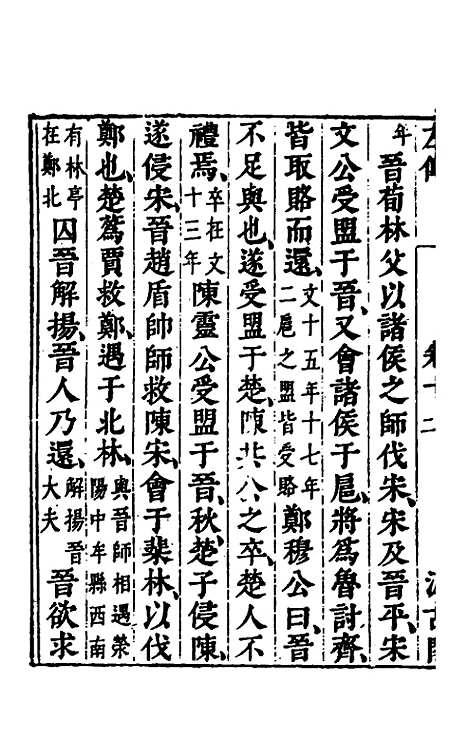 年晉荀林父以諸侯之師伐宋、宋及晉平、宋
文公受盟于晉、又會諸侯于扈、將爲魯討齊、
皆取賂而還、文十五年十七年二扈之盟皆受賂鄭穆公曰、晉
不足與也、遂受盟于楚、陳共公之卒、楚人不
禮焉、卒在文十三年陳靈公受盟于晉、秋、楚子侵陳、
遂侵宋、晉趙盾帥師救陳宋、會于棐林、以伐
鄭也、楚蔿賈救鄭、遇于北林、與晉師相遇滎陽中牟縣西南
有林亭在鄭北囚晉解揚、晉人乃還、解揚晉大夫晉欲求